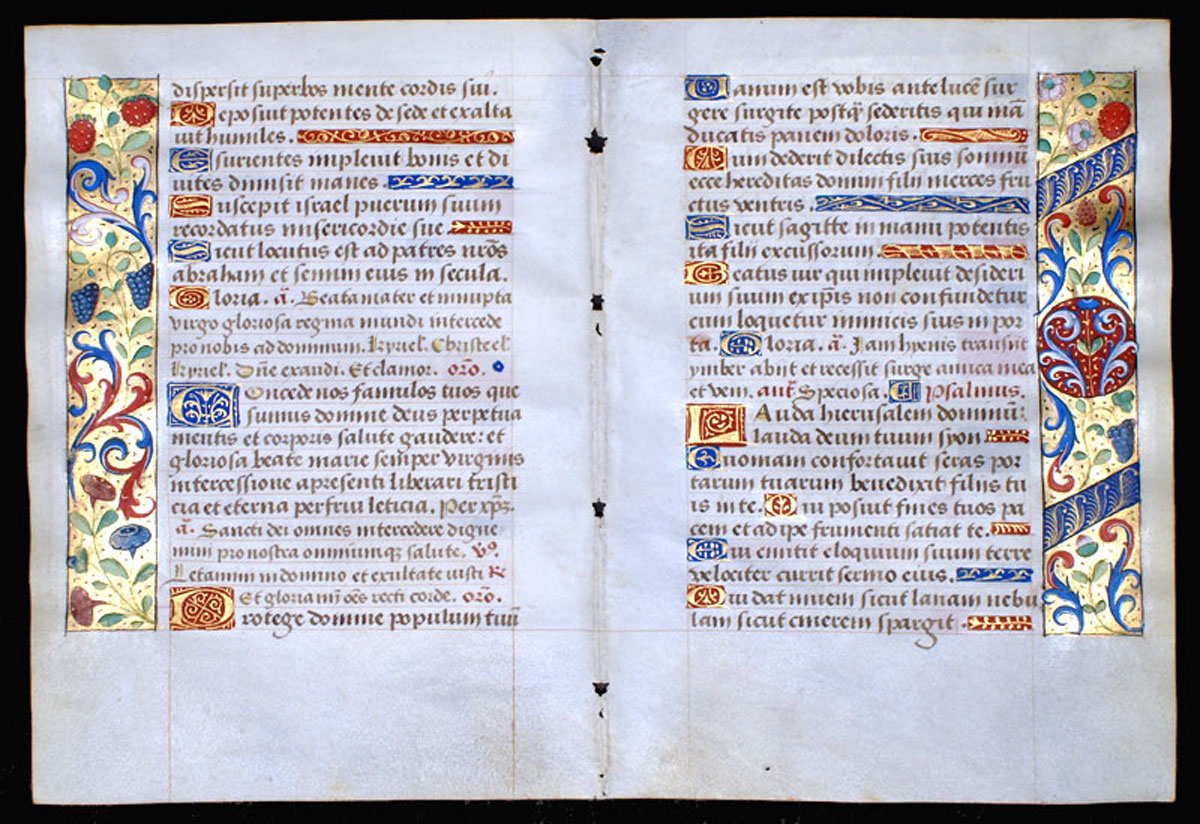 dispersit superbos mente cordis sui.
Deposuit potentes de sede et exalta
uit humiles.
Esurientes impleuit bonis et di
uites dimisit inanes.
Suscepit israel puerum suum
recordatus misericordie sue
Sicut locutus est ad patres nrõs
abraham et semini eius in secula.
Gloria. ã. Beata mater et innupta
virgo gloriosa regina mundi intercede
pro nobis ad dominum. Kyriel. Christeel.
Kyriel. Dñe exaudi. Et clamor. orõ.
Concede nos famulos tuos que
sumus domine deus perpetua
mentis et corporis salute gaudere: et
gloriosa beate marie semper virginis
intercessione a presenti liberari tristi
cia et eterna perfrui leticia. Per xp̃ȝ.
ã. Sancti dei omnes intercedere digne
mini pro nostra omniumqȝ salute. vȝ.
Letamini in domino et exultate iusti R̃
Et gloria mĩ oẽs recti corde. orõ.
Protege domine populum tuũ
Vanum est vobis ante lucẽ sur
gere surgite postqȝ sederitis qui mã
ducatis panem doloris.
Cum dederit dilectis suis somnũ
ecce hereditas domini filii merces fru
ctus ventris.
Sicut sagitte in manu potentis
ita filii excussorum
Beatus uir qui impleuit desideri
um suum ex ip̃is non confundetur
cum loquetur inimicis suis in por
ta. Gloria. ã. Iam hyenis transiit
ymber abiit et recessit surge amica mea
et veni. añt Speciosa. Psalmus.
Lauda hierusalem dominũ:
lauda deum tuum syon
Quoniam confortauit seras por
tarum tuarum benedixit filiis tu
is in te. Qui posuit fines tuos pa
cem et adipe frumenti satiat te.
Qui emittit eloquium suum terre
velociter currit sermo eius.
Qui dat niuem sicut lanam nebu
lam sicut cinerem spargit.